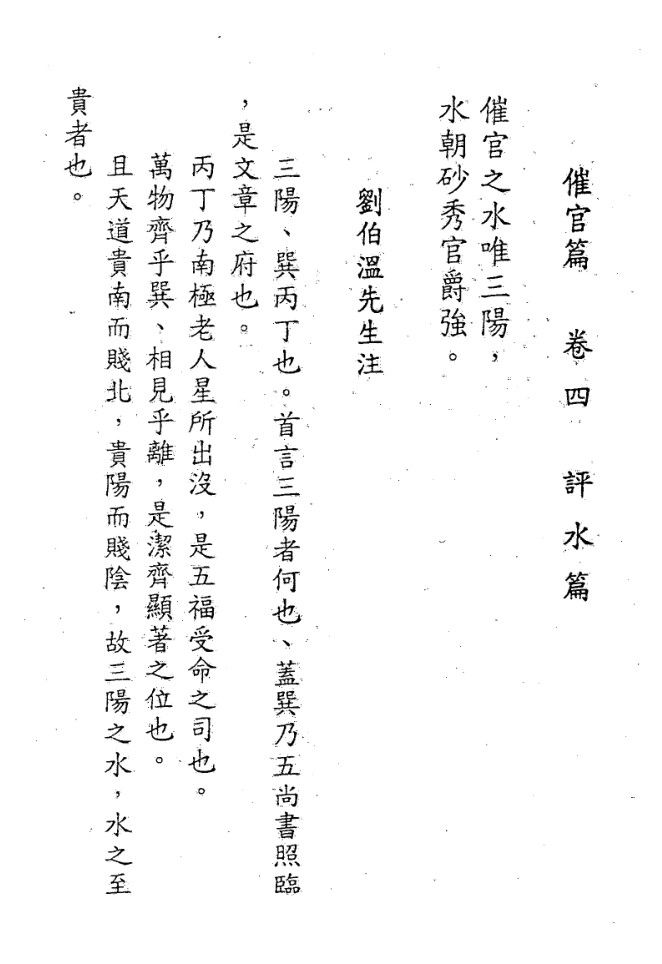 催官篇 卷四 評水篇
催官之水唯三陽，
水朝砂秀官爵強。
劉伯溫先生注
三陽、巽丙丁也。首言三陽者何也、蓋巽乃五尚書照臨
，是文章之府也。
丙丁乃南極老人星所出沒，是五福受命之司也。
萬物齊乎巽、相見乎離，是潔齊顯著之位也。
且天道貴南而賤北，貴陽而賤陰，故三陽之水，水之至
貴者也。